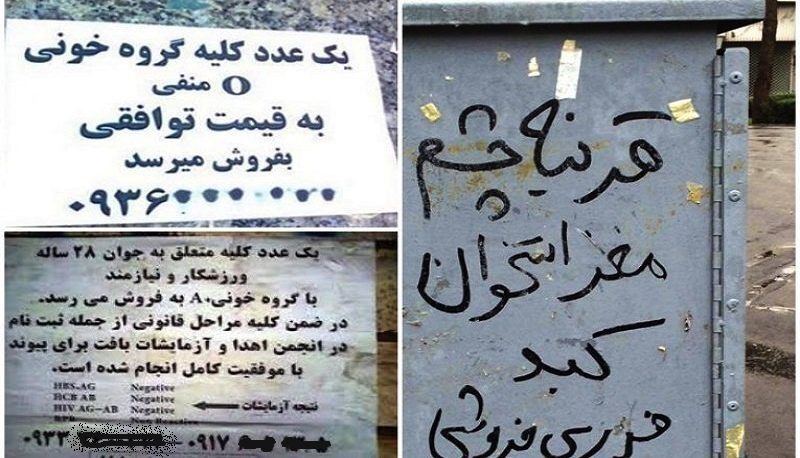 یک عدد کلیه گروه خونی
O منفی
به قیمت توافقی
بفروش میرسد
۰۹۳۶
یک عدد کلیه متعلق به جوان ۲۸ ساله
ورزشکار و نیازمند
با گروه خونی A+ به فروش می رسد.
در ضمن کلیه مراحل قانونی از جمله ثبت نام
در انجمن اهدا و آزمایشات بافت برای پیوند
با موفقیت کامل انجام شده است.
HBS.AG Negative
HCB AB Negative
HIV AG-AB Negative
نتیجه آزمایشات
۰۹۳۳ ۰۹۱۷
قرنیه چشم
مغز استخوان
کبد
فوری فروشی